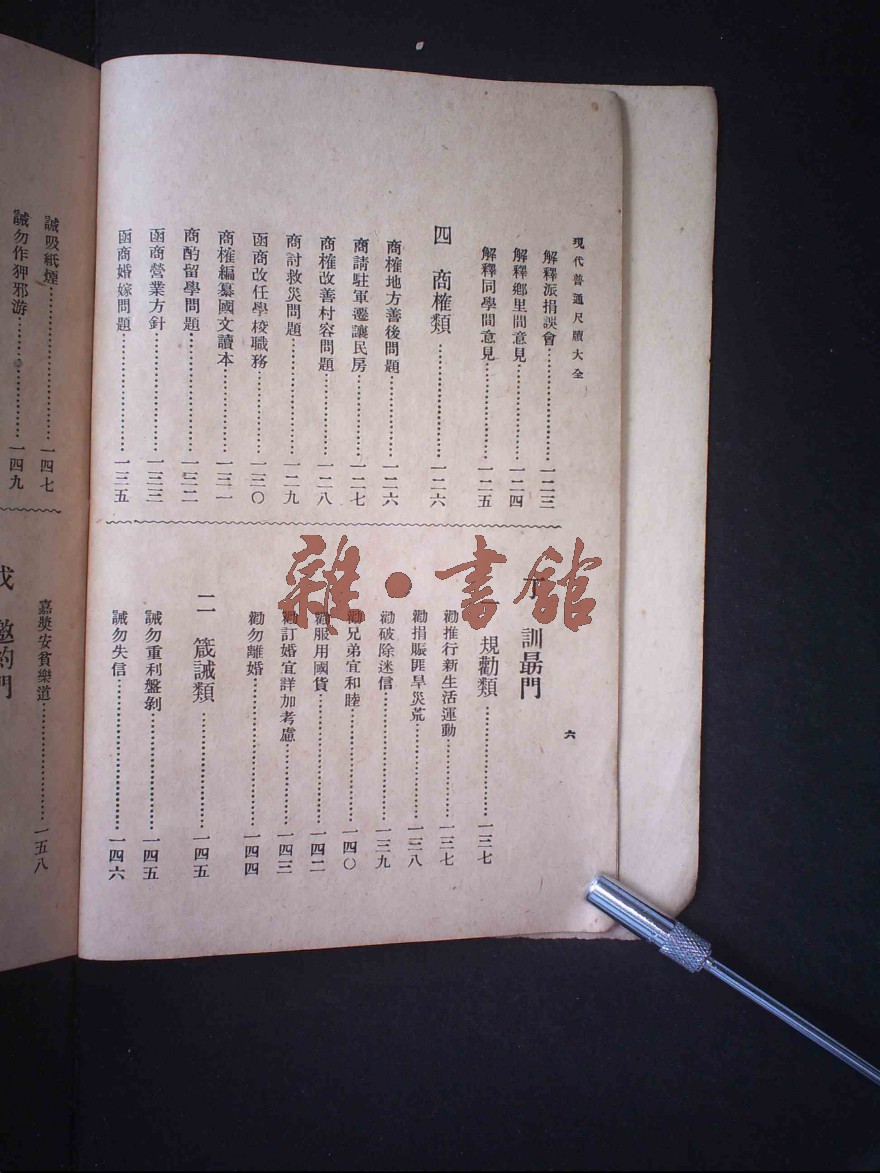 現代普通尺牘大全
解釋派捐誤會⋯⋯⋯⋯一二三
解釋鄉里間意見⋯⋯⋯⋯一二四
解釋同學間意見⋯⋯⋯⋯一二五
四 商榷類⋯⋯⋯⋯一二六
商榷地方善後問題⋯⋯⋯⋯一二六
商請駐軍遷讓民房⋯⋯⋯⋯一二七
商榷改善村容問題⋯⋯⋯⋯一二八
商討救災問題⋯⋯⋯⋯一二九
函商改任學校職務⋯⋯⋯⋯一三〇
商榷編纂國文讀本⋯⋯⋯⋯一三一
商酌留學問題⋯⋯⋯⋯一三二
函商營業方針⋯⋯⋯⋯一三三
函商婚嫁問題⋯⋯⋯⋯一三五
丁 訓勗門
一 規勸類⋯⋯⋯⋯一三七
勸推行新生活運動⋯⋯⋯⋯一三七
勸捐賑匪旱災荒⋯⋯⋯⋯一三八
勸破除迷信⋯⋯⋯⋯一三九
勸兄弟宜和睦⋯⋯⋯⋯一四〇
勸服用國貨⋯⋯⋯⋯一四二
勸訂婚宜詳加考慮⋯⋯⋯⋯一四三
勸勿離婚⋯⋯⋯⋯一四四
二 箴誡類⋯⋯⋯⋯一四五
誡勿重利盤剝⋯⋯⋯⋯一四五
誡勿失信⋯⋯⋯⋯一四六
六
誡吸紙煙⋯⋯⋯⋯一四七
誡勿作狎邪游⋯⋯⋯⋯一四九
嘉奬安貧樂道⋯⋯⋯⋯一五八
邀約門
雜·書館